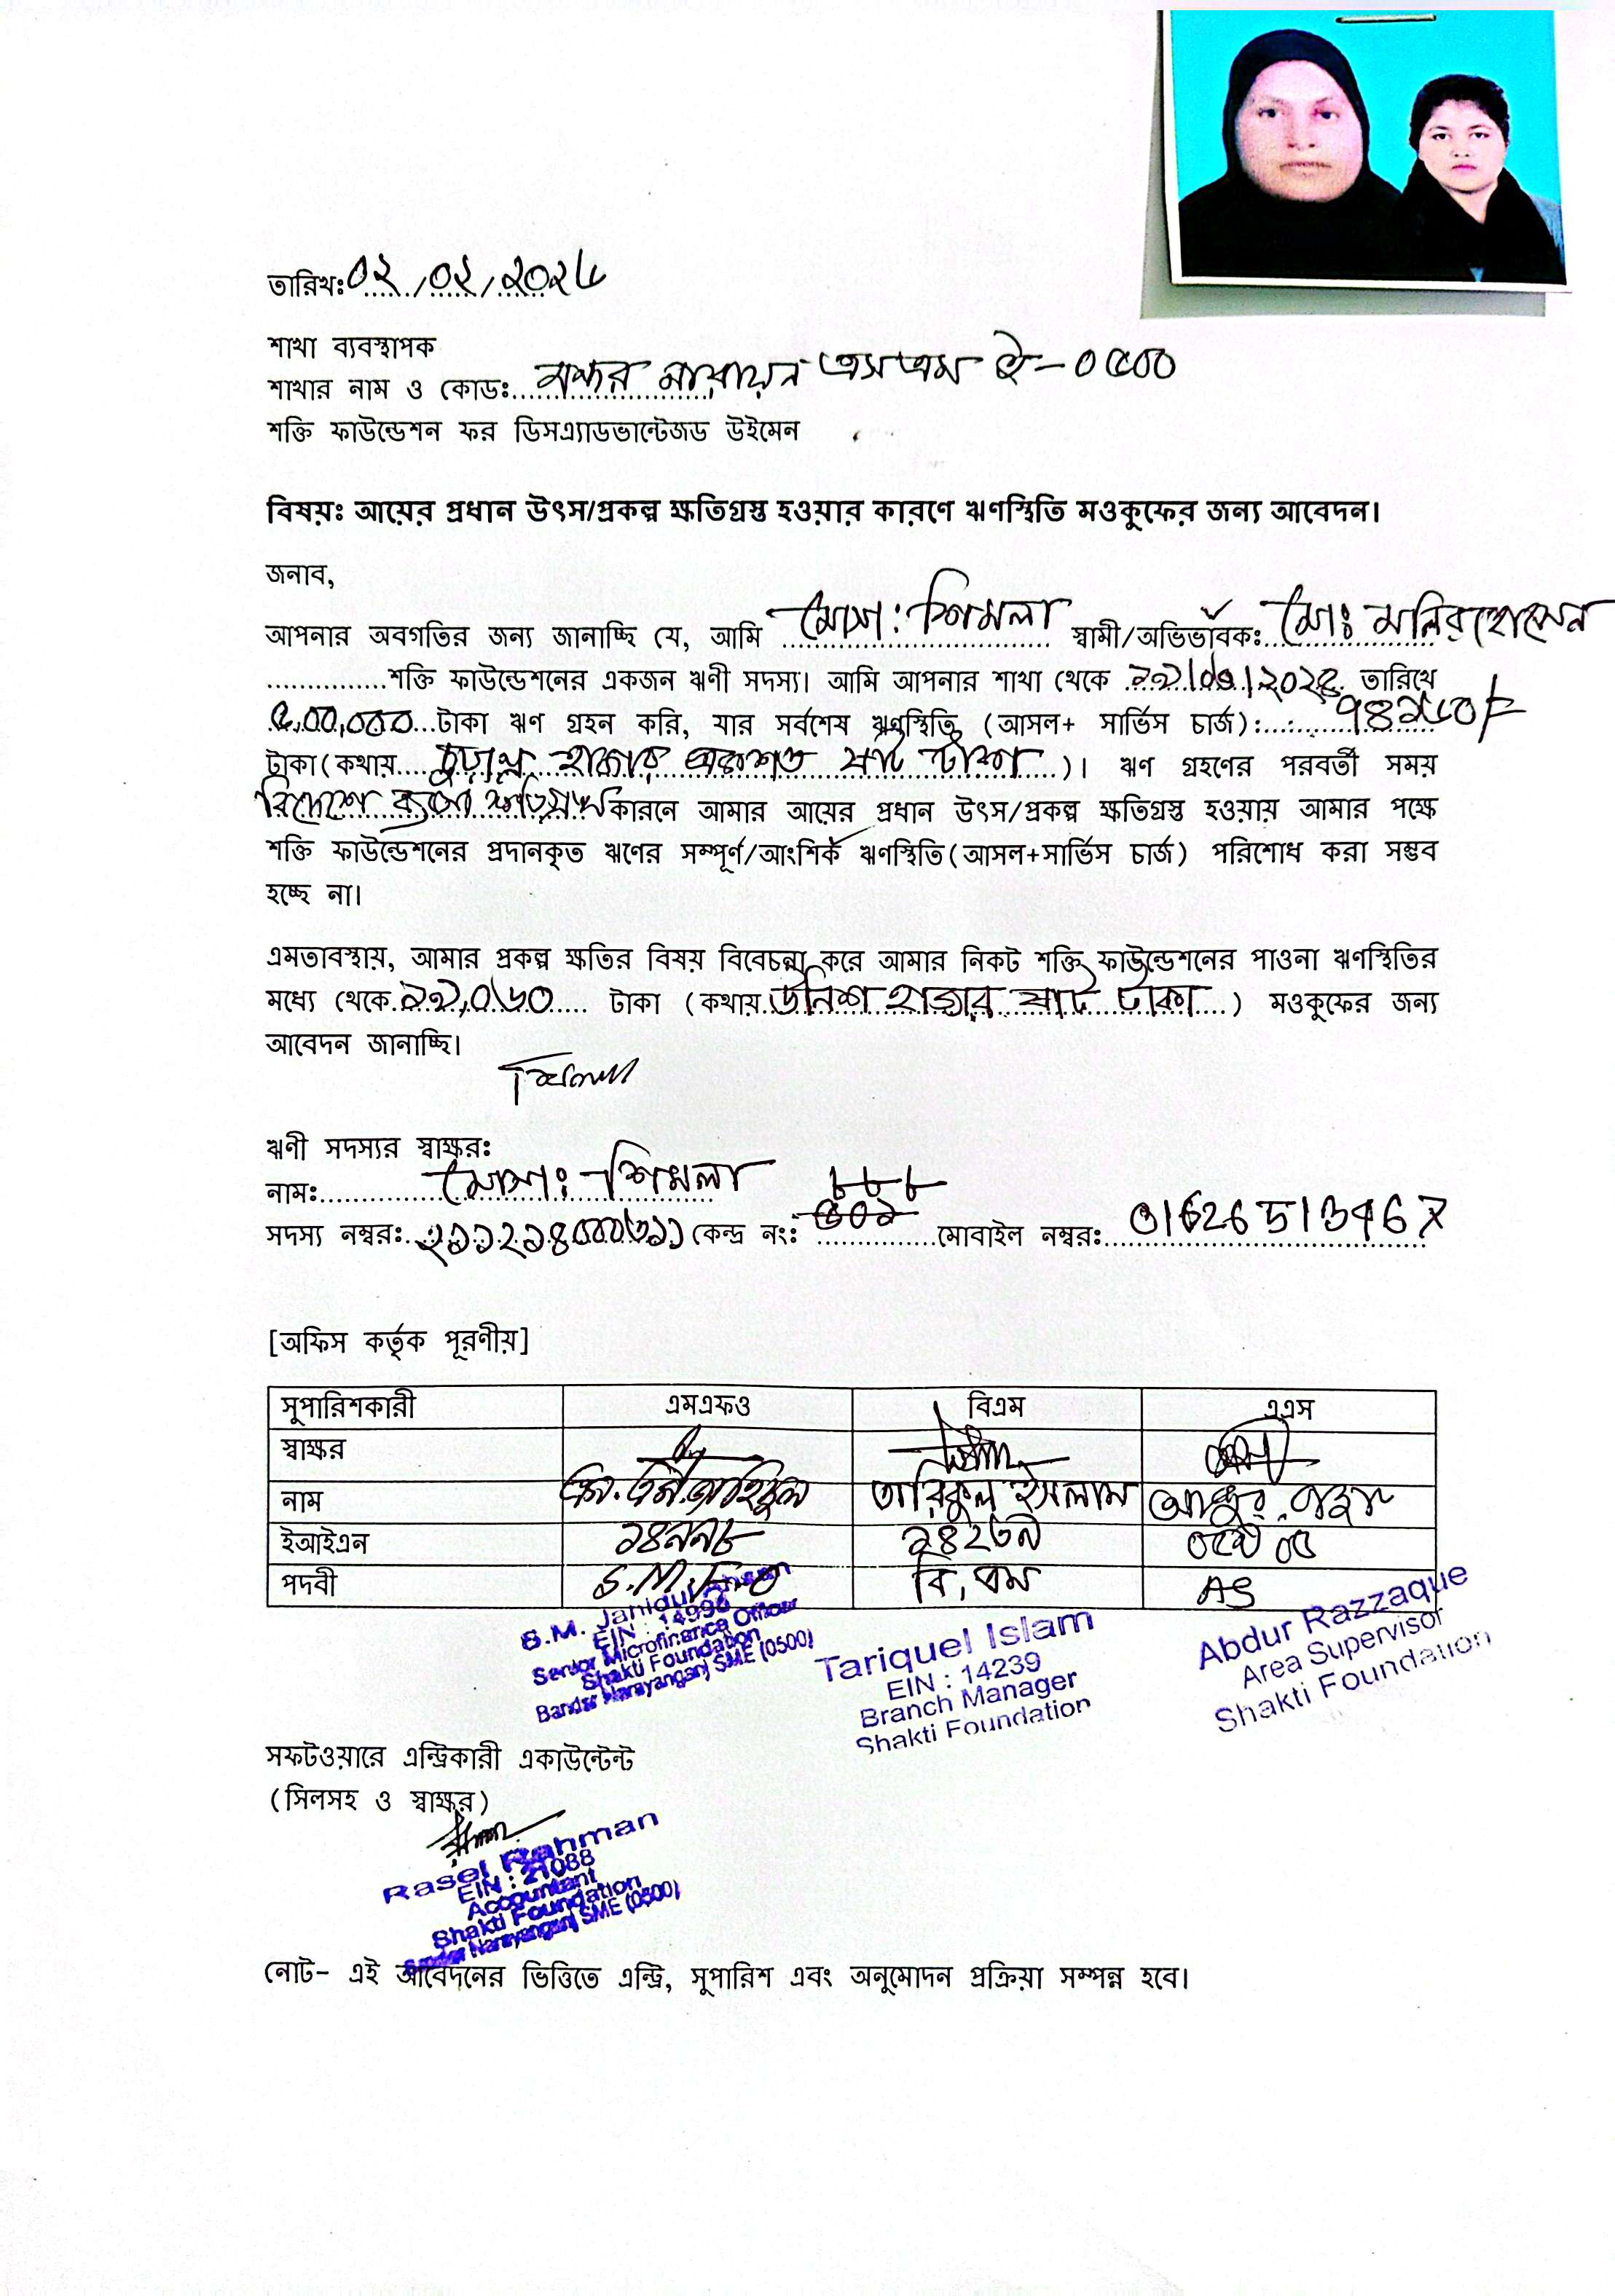 তারিখঃ ০২/০২/২০২৬
শাখা ব্যবস্থাপক
শাখার নাম ও কোডঃ বন্দর নারায়ন এস এম ই-০৫০০
শক্তি ফাউন্ডেশন ফর ডিসএ্যাডভান্টেজড উইমেন
বিষয়ঃ আয়ের প্রধান উৎস/প্রকল্প ক্ষতিগ্রস্ত হওয়ার কারণে ঋণস্থিতি মওকুফের জন্য আবেদন।
জনাব,
আপনার অবগতির জন্য জানাচ্ছি যে, আমি মোসা: শিমলা স্বামী/অভিভাবকঃ মোঃ মনির হোসেন
শক্তি ফাউন্ডেশনের একজন ঋণী সদস্য। আমি আপনার শাখা থেকে তারিখে
৫,০০,০০০ টাকা ঋণ গ্রহন করি, যার সর্বশেষ ঋণস্থিতি (আসল+ সার্ভিস চার্জ): ৭৪১৬০/=
টাকা(কথায় হাজার একশত ষাট টাকা)। ঋণ গ্রহণের পরবর্তী সময়
কারনে আমার আয়ের প্রধান উৎস/প্রকল্প ক্ষতিগ্রস্ত হওয়ায় আমার পক্ষে
শক্তি ফাউন্ডেশনের প্রদানকৃত ঋণের সম্পূর্ণ/আংশিক ঋণস্থিতি(আসল+সার্ভিস চার্জ) পরিশোধ করা সম্ভব
হচ্ছে না।
এমতাবস্থায়, আমার প্রকল্প ক্ষতির বিষয় বিবেচনা করে আমার নিকট শক্তি ফাউন্ডেশনের পাওনা ঋণস্থিতির
মধ্যে থেকে ১৯,০৬০ টাকা (কথায় উনিশ হাজার ষাট টাকা) মওকুফের জন্য
আবেদন জানাচ্ছি।
শিমলা
ঋণী সদস্যর স্বাক্ষরঃ
নামঃ মোসাঃ শিমলা
সদস্য নম্বরঃ কেন্দ্র নং: মোবাইল নম্বরঃ
[অফিস কর্তৃক পূরণীয়]
সুপারিশকারী এমএফও বিএম এএস
স্বাক্ষর
নাম তারিকুল ইসলাম
ইআইএন ১৪৯৯৮ ১৪২৩৯
পদবী S.M.F.O বি,এম AS
S.M. Janidul
EIN : 14998
Senior Microfinance Officer
Shakti Foundation
Bandar Narayanganj SME (0500)
Tariquel Islam
EIN : 14239
Branch Manager
Shakti Foundation
Abdur Razzaque
Area Supervisor
Shakti Foundation
সফটওয়ারে এন্ট্রিকারী একাউন্টেন্ট
(সিলসহ ও স্বাক্ষর)
Rasel Rahman
EIN : 21088
Accountant
Shakti Foundation
Bandar Narayanganj SME (0500)
নোট- এই আবেদনের ভিত্তিতে এন্ট্রি, সুপারিশ এবং অনুমোদন প্রক্রিয়া সম্পন্ন হবে।